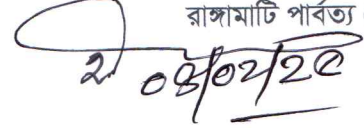 রাঙ্গামাটি পার্বত্য
০৪/০২/২৫